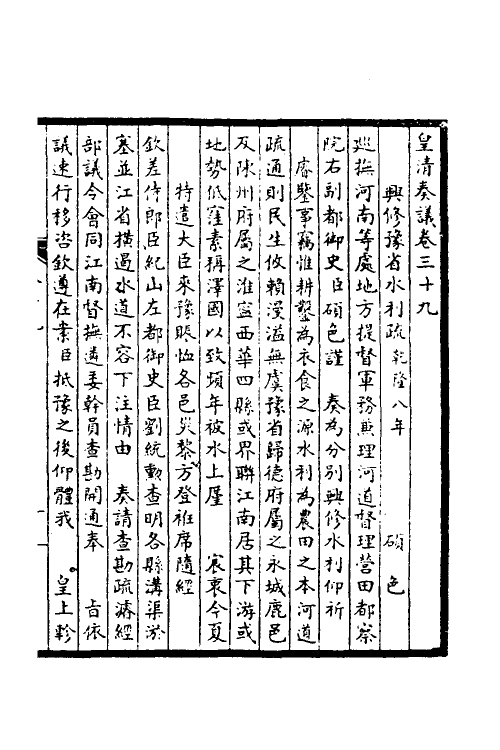 皇清奏議卷三十九
興修豫省水利疏 乾隆八年 碩色
巡撫河南等處地方提督軍務兼理河道督理營田都察
院右副都御史臣碩色謹 奏為分別興修水利仰祈
睿鑒事竊惟耕鑿為衣食之源水利為農田之本河道
疏通則民生攸賴漫溢無虞豫省歸德府屬之永城鹿邑
及陳州府屬之淮寧西華四縣或界聯江南居其下游或
地勢低窪素稱澤國以致頻年被水上廑 宸衷今夏
特遣大臣來豫賑恤各邑災黎方登袵席隨經
欽差侍郎臣紀山左都御史臣劉統勳查明各縣溝渠淤
塞並江省橫過水道不容下注情由 奏請查勘疏濬經
部議今會同江南督撫遴委幹員查勘開通奉 旨依
議速行移咨欽遵在案臣抵豫之後仰體我 皇上軫